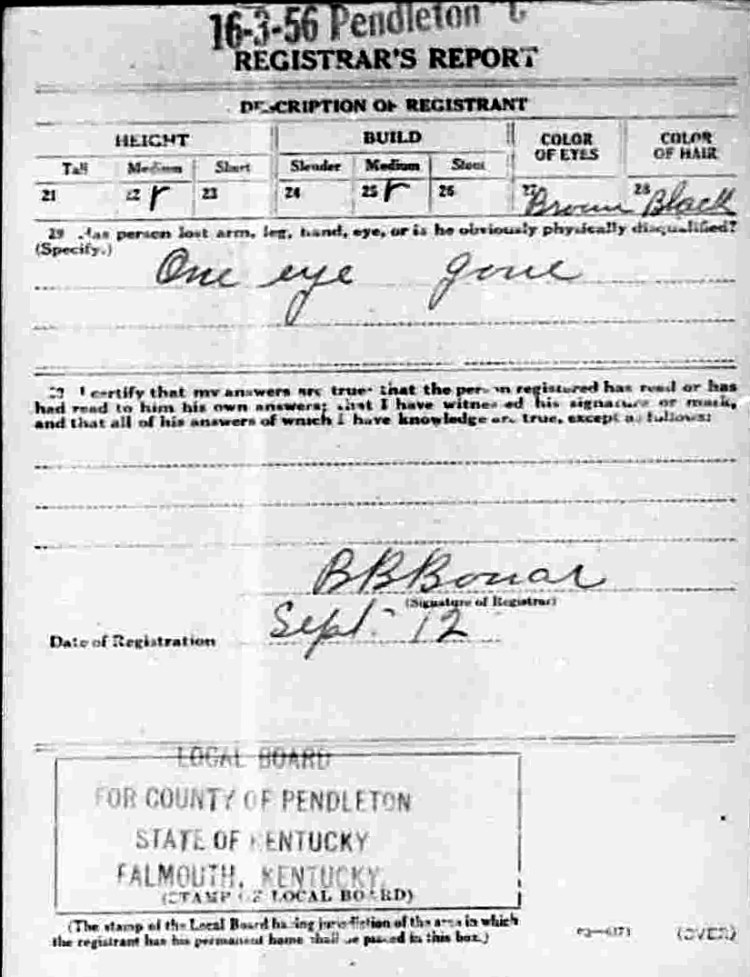 16-3-56 Pendleton C
REGISTRAR'S REPORT
DESCRIPTION OF REGISTRANT
HEIGHT BUILD COLOR OF EYES COLOR OF HAIR
Tall Medium Short Slender Medium Stout
21 22 23 24 25 26 27 Brown 28 Black
29 Has person lost arm, leg, hand, eye, or is he obviously physically disqualified?
(Specify.)
One eye gone
I certify that my answers are true; that the person registered has read or has
had read to him his own answers; that I have witnessed his signature or mark,
and that all of his answers of which I have knowledge are true, except as follows:
B B Bonar
(Signature of Registrar)
Date of Registration Sept. 12
LOCAL BOARD
FOR COUNTY OF PENDLETON
STATE OF KENTUCKY
FALMOUTH, KENTUCKY.
(STAMP OF LOCAL BOARD)
(The stamp of the Local Board having jurisdiction of the area in which
the registrant has his permanent home shall be placed in this box.)
(OVER)